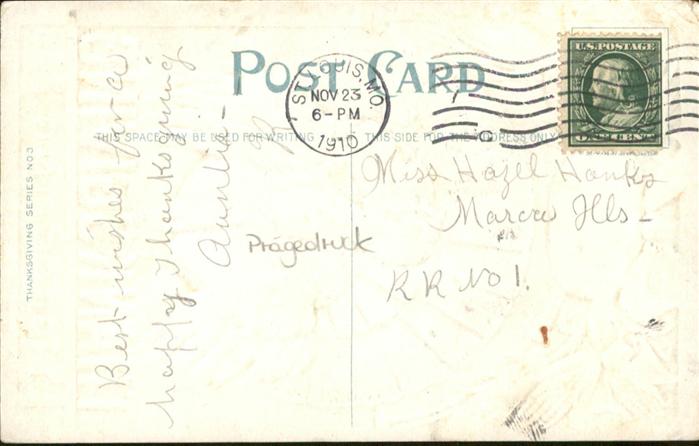 POST CARD
ST. LOUIS, MO.
NOV 23
6-PM
1910
U.S. POSTAGE
ONE CENT
THIS SPACE MAY BE USED FOR WRITING
THIS SIDE FOR THE ADDRESS ONLY
THANKSGIVING SERIES NO 3
Best wishes for a
happy Thanksgiving
Auntie -
Prägedruck
Miss Hazel Hanks
Ills -
RR No 1.